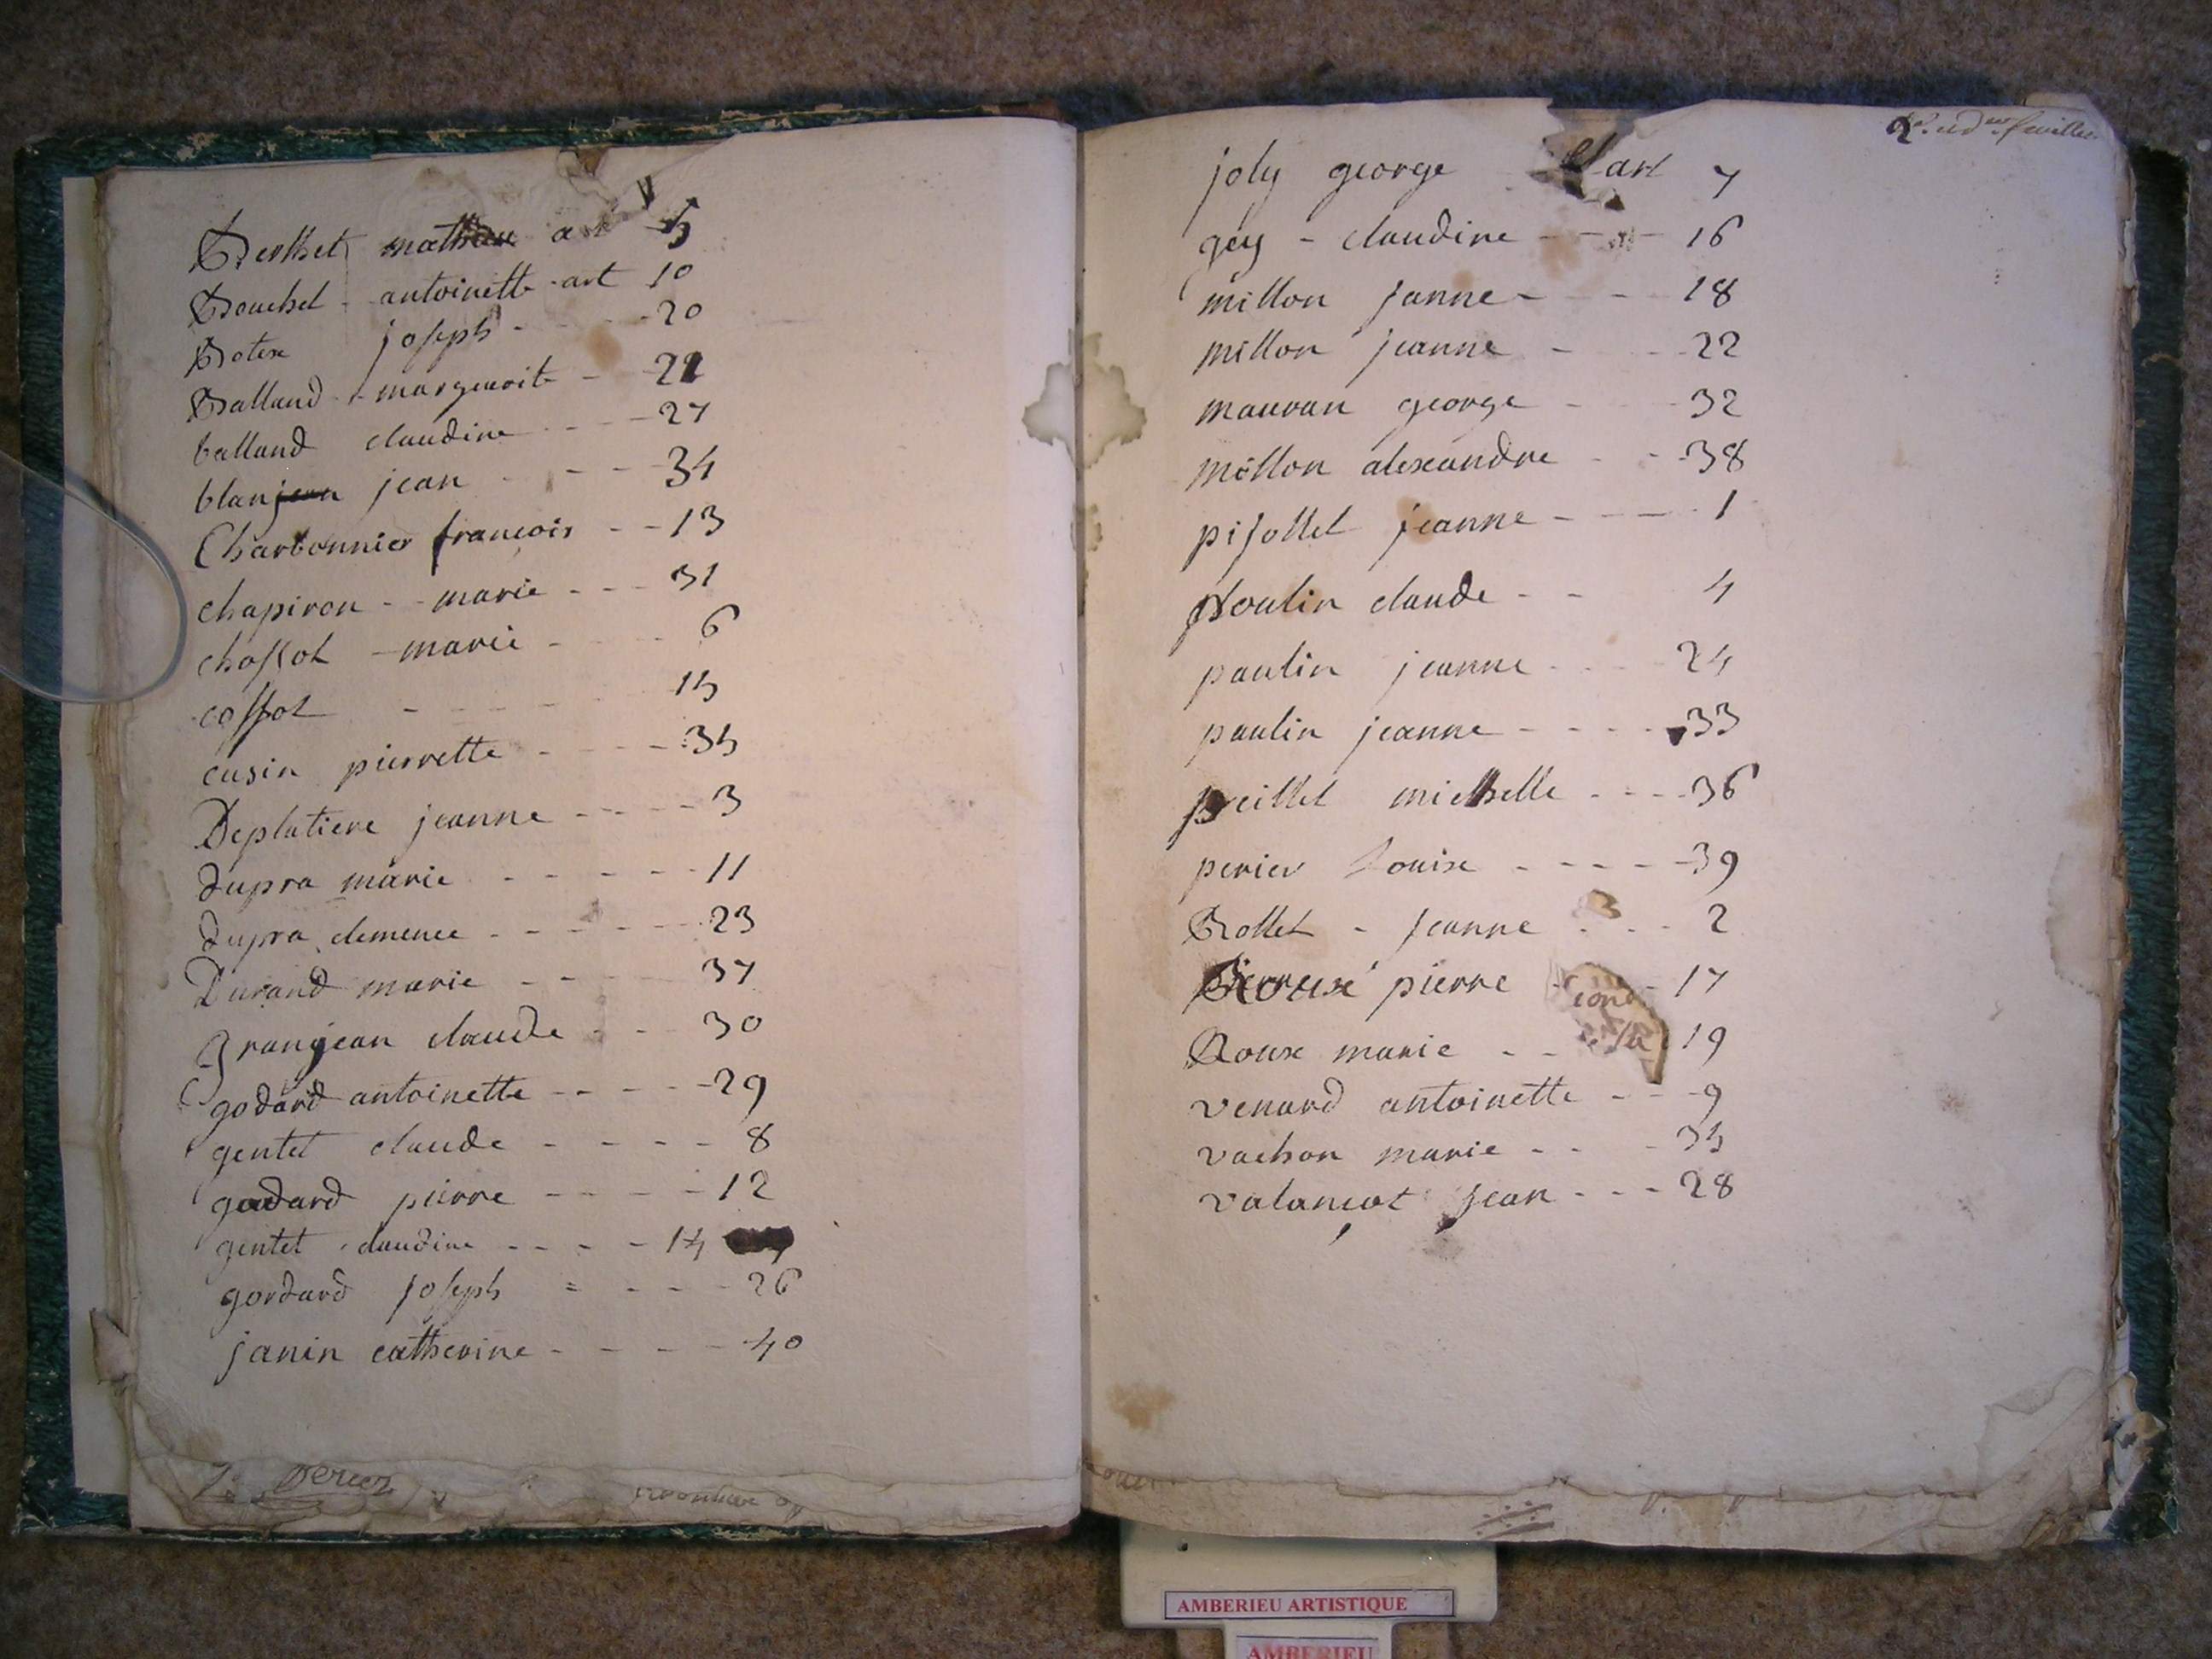 Berthet mathieu art 5
Bouchet - antoinette - art 10
Botex joseph - - - 20
Balland - marguerite - 21
balland claudine - - - 27
blan jean - - - 34
Charbonnier francois - - 13
chapiron - - marie - - - 31
chossot - marie - - - 6
cossot - - - - 15
cusin pierrette - - - 35
Deplatiere jeanne - - - - 3
dupra marie - - - - - 11
dupra clemence - - - - - 23
Durand marie - - - - 37
granjean claude - - 30
godard antoinette - - - - 29
gentet claude - - - - 8
godard pierre - - - - 12
gentet claudine - - - - 14
gordard joseph = - - - 26
janin catherine - - - - 40
joly george art 7
gey - claudine - - - 16
millon janne - - - 18
millon jeanne - - - 22
mauran george - - 32
millon alexandre - - - 38
pisollet jeanne - - - 1
poulin claude - - 4
paulin jeanne - - - 24
paulin jeanne - - - - 33
preillet michelle - - - - 36
perier Louise - - - - - 39
Rollet - jeanne - - - 2
pierre - 17
Roux marie - - 19
venard antoinette - - - 9
vachon marie - - - 35
valançot jean - - - 28
AMBERIEU ARTISTIQUE
AMBERIEU